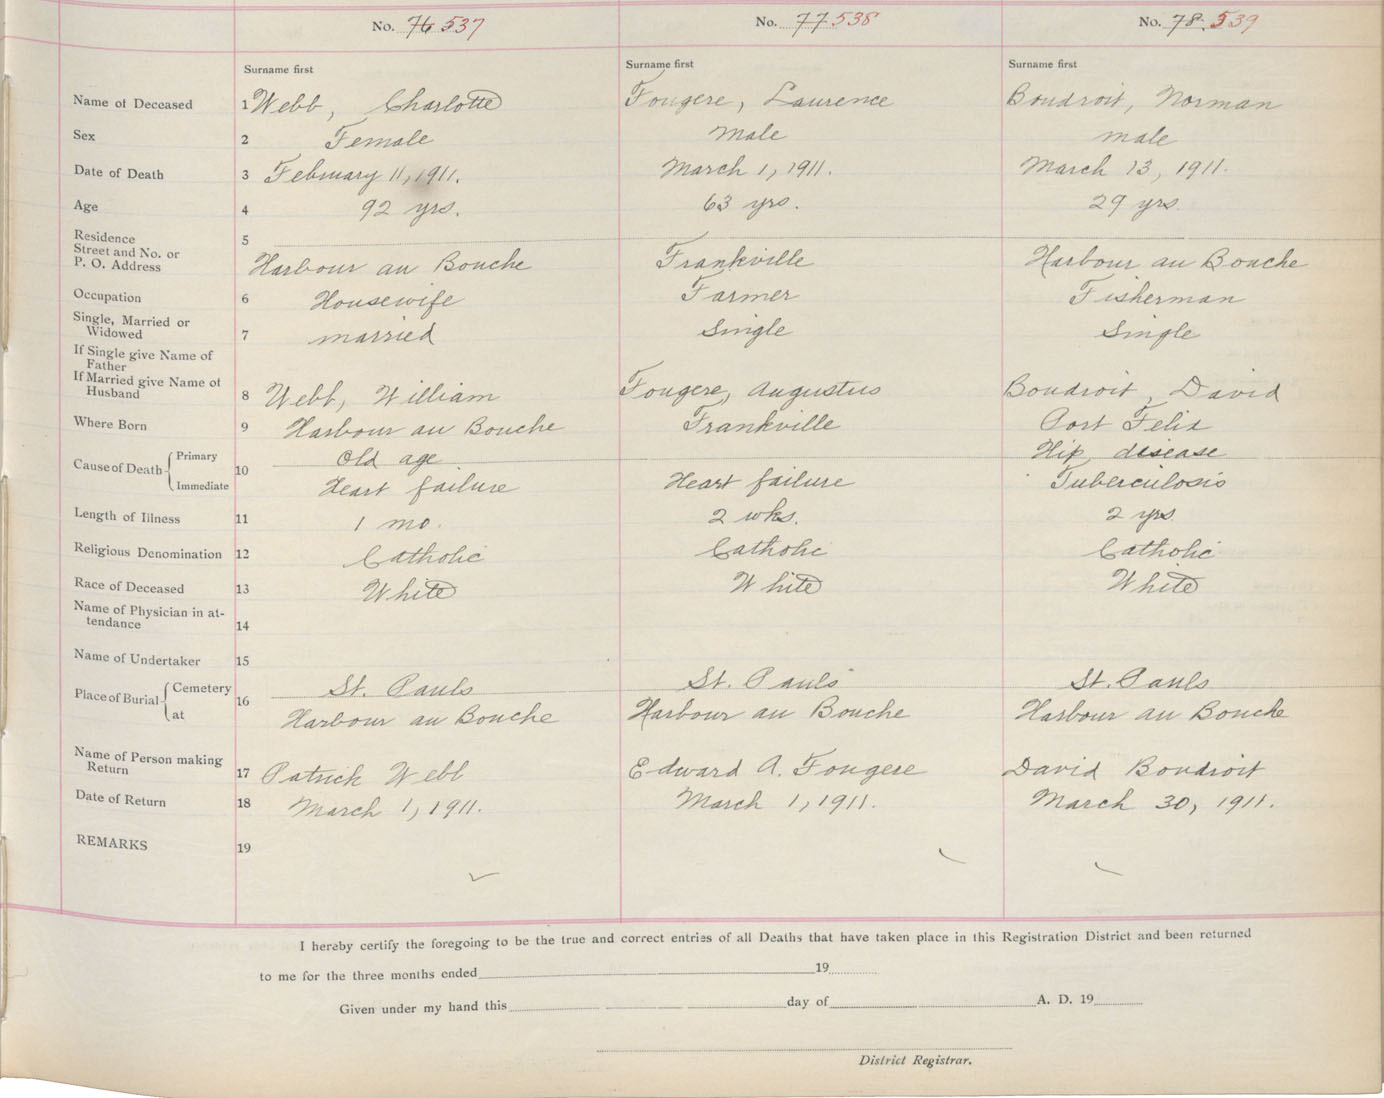 No. 76 537 No. 77 538 No. 78. 539
Surname first Surname first Surname first
Name of Deceased 1 Webb, Charlotte Fougere, Laurence Boudroit, Norman
Sex 2 Female Male male
Date of Death 3 February 11, 1911. March 1, 1911. March 13, 1911.
Age 4 92 yrs. 63 yrs. 29 yrs.
Residence 5
Street and No. or
P. O. Address Harbour au Bouche Frankville Harbour au Bouche
Occupation 6 Housewife Farmer Fisherman
Single, Married or
Widowed 7 married Single Single
If Single give Name of
Father
If Married give Name of
Husband 8 Webb, William Fougere, Augustus Boudroit, David
Where Born 9 Harbour au Bouche Frankville Port Felix
Cause of Death Primary 10 Old age Hip disease
Immediate Heart failure Heart failure Tuberculosis
Length of Illness 11 1 mo. 2 wks. 2 yrs
Religious Denomination 12 Catholic Catholic Catholic
Race of Deceased 13 White White White
Name of Physician in at-
tendance 14
Name of Undertaker 15
Place of Burial Cemetery 16 St. Pauls St. Pauls St. Pauls
at Harbour au Bouche Harbour au Bouche Harbour au Bouche
Name of Person making
Return 17 Patrick Webb Edward A. Fougere David Boudroit
Date of Return 18 March 1, 1911. March 1, 1911. March 30, 1911.
REMARKS 19
I hereby certify the foregoing to be the true and correct entries of all Deaths that have taken place in this Registration District and been returned
to me for the three months ended 19
Given under my hand this day of A. D. 19
District Registrar.